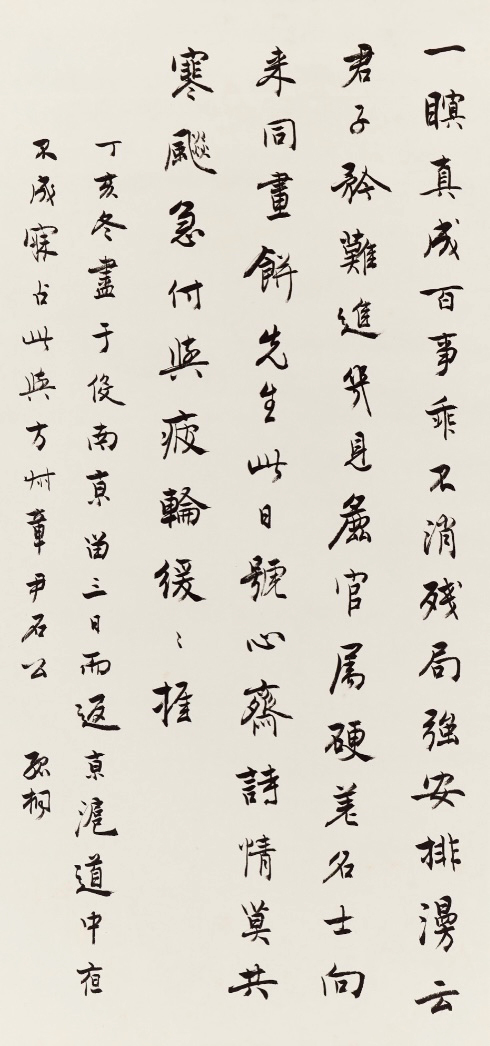 一瞑真成百事乖不消殘局強安排漫云
君子矜難進幾見麤官屬硬差名士向
来同畫餅先生此日號心齋詩情莫共
寒颷急付與疲輪緩〻推
丁亥冬盡于役南京留三日而返京滬道中夜
不成寐占此與方州章尹石公 孤桐